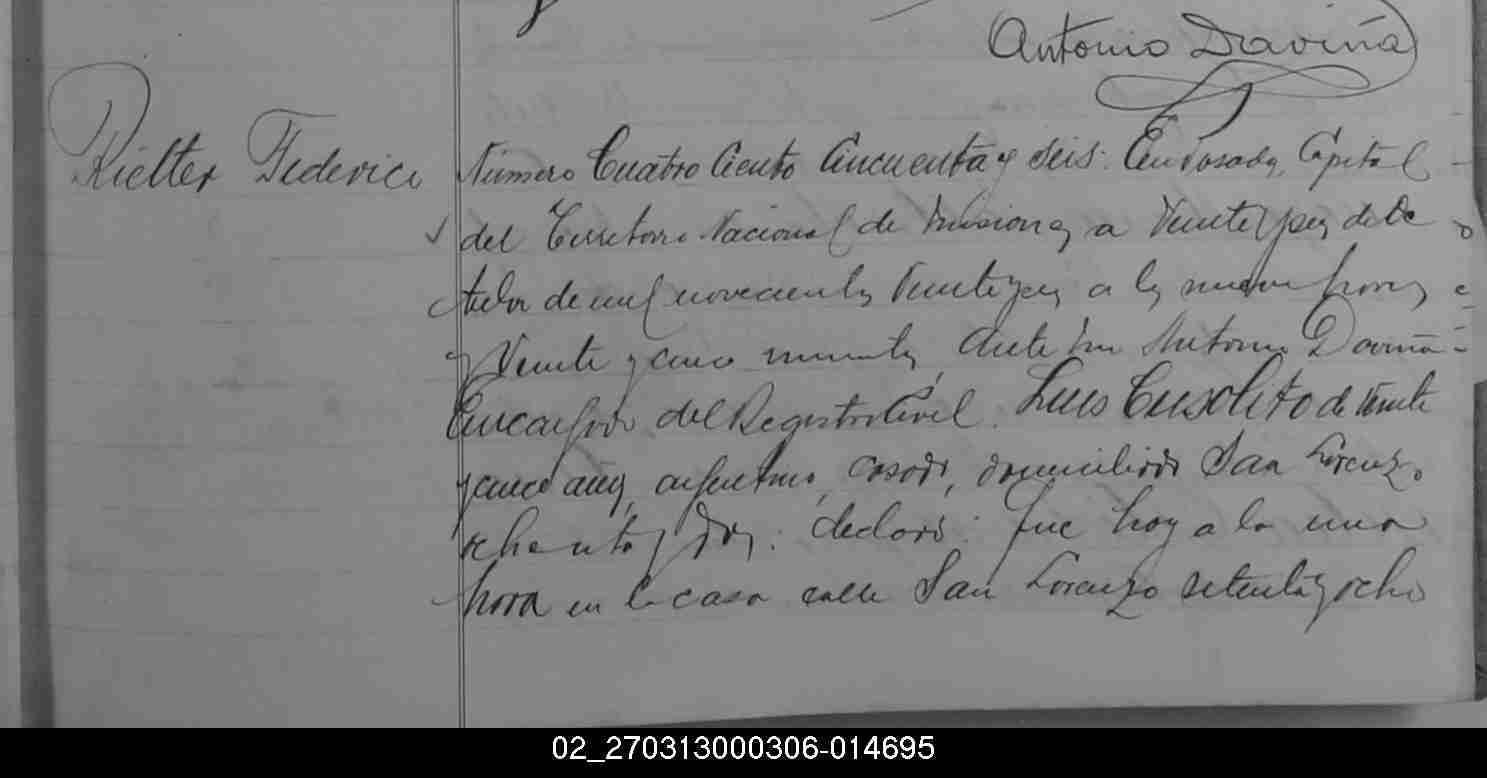 Antonio Daviña
Rielter Federico
Número Cuatro Ciento Cincuenta y seis. En Posadas, Capital
del Territorio Nacional de Misiones a Veinte y seis de Oc
tubre de mil novecientos Veinte y seis a las nueve horas
y Veinte y cinco minutos, Ante mi Antonio Daviña
Encargado del Registro Civil. Luis Cusolito de veinte
y cinco años, argentino, casado, domiciliado San Lorenzo
ochenta y dos: declaró: Que hoy a la una
hora en la casa calle San Lorenzo setenta y ocho
02_270313000306-014695